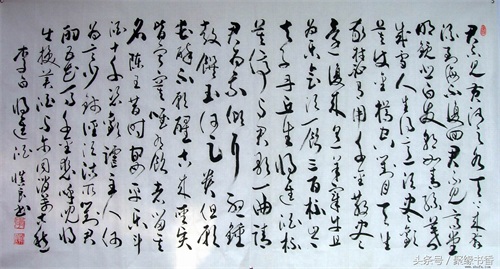 君不见黄河之水天上来奔
流到海不复回君不见高堂
明镜悲白发朝如青丝暮
成雪人生得意须尽欢
莫使金樽空对月天生
我材必有用千金散尽
还复来烹羊宰牛且
为乐会须一饮三百杯岑
夫子丹丘生将进酒杯
莫停与君歌一曲请
君为我倾耳听钟
鼓馔玉何足贵但愿
长醉不愿醒古来圣贤
皆寂寞唯有饮者留其
名陈王昔时宴平乐斗
酒十千恣欢谑主人何
为言少钱径须沽取对君
酌五花马千金裘呼儿将
出换美酒与尔同销万古愁
李白将进酒 书
头条号／聚缘书香